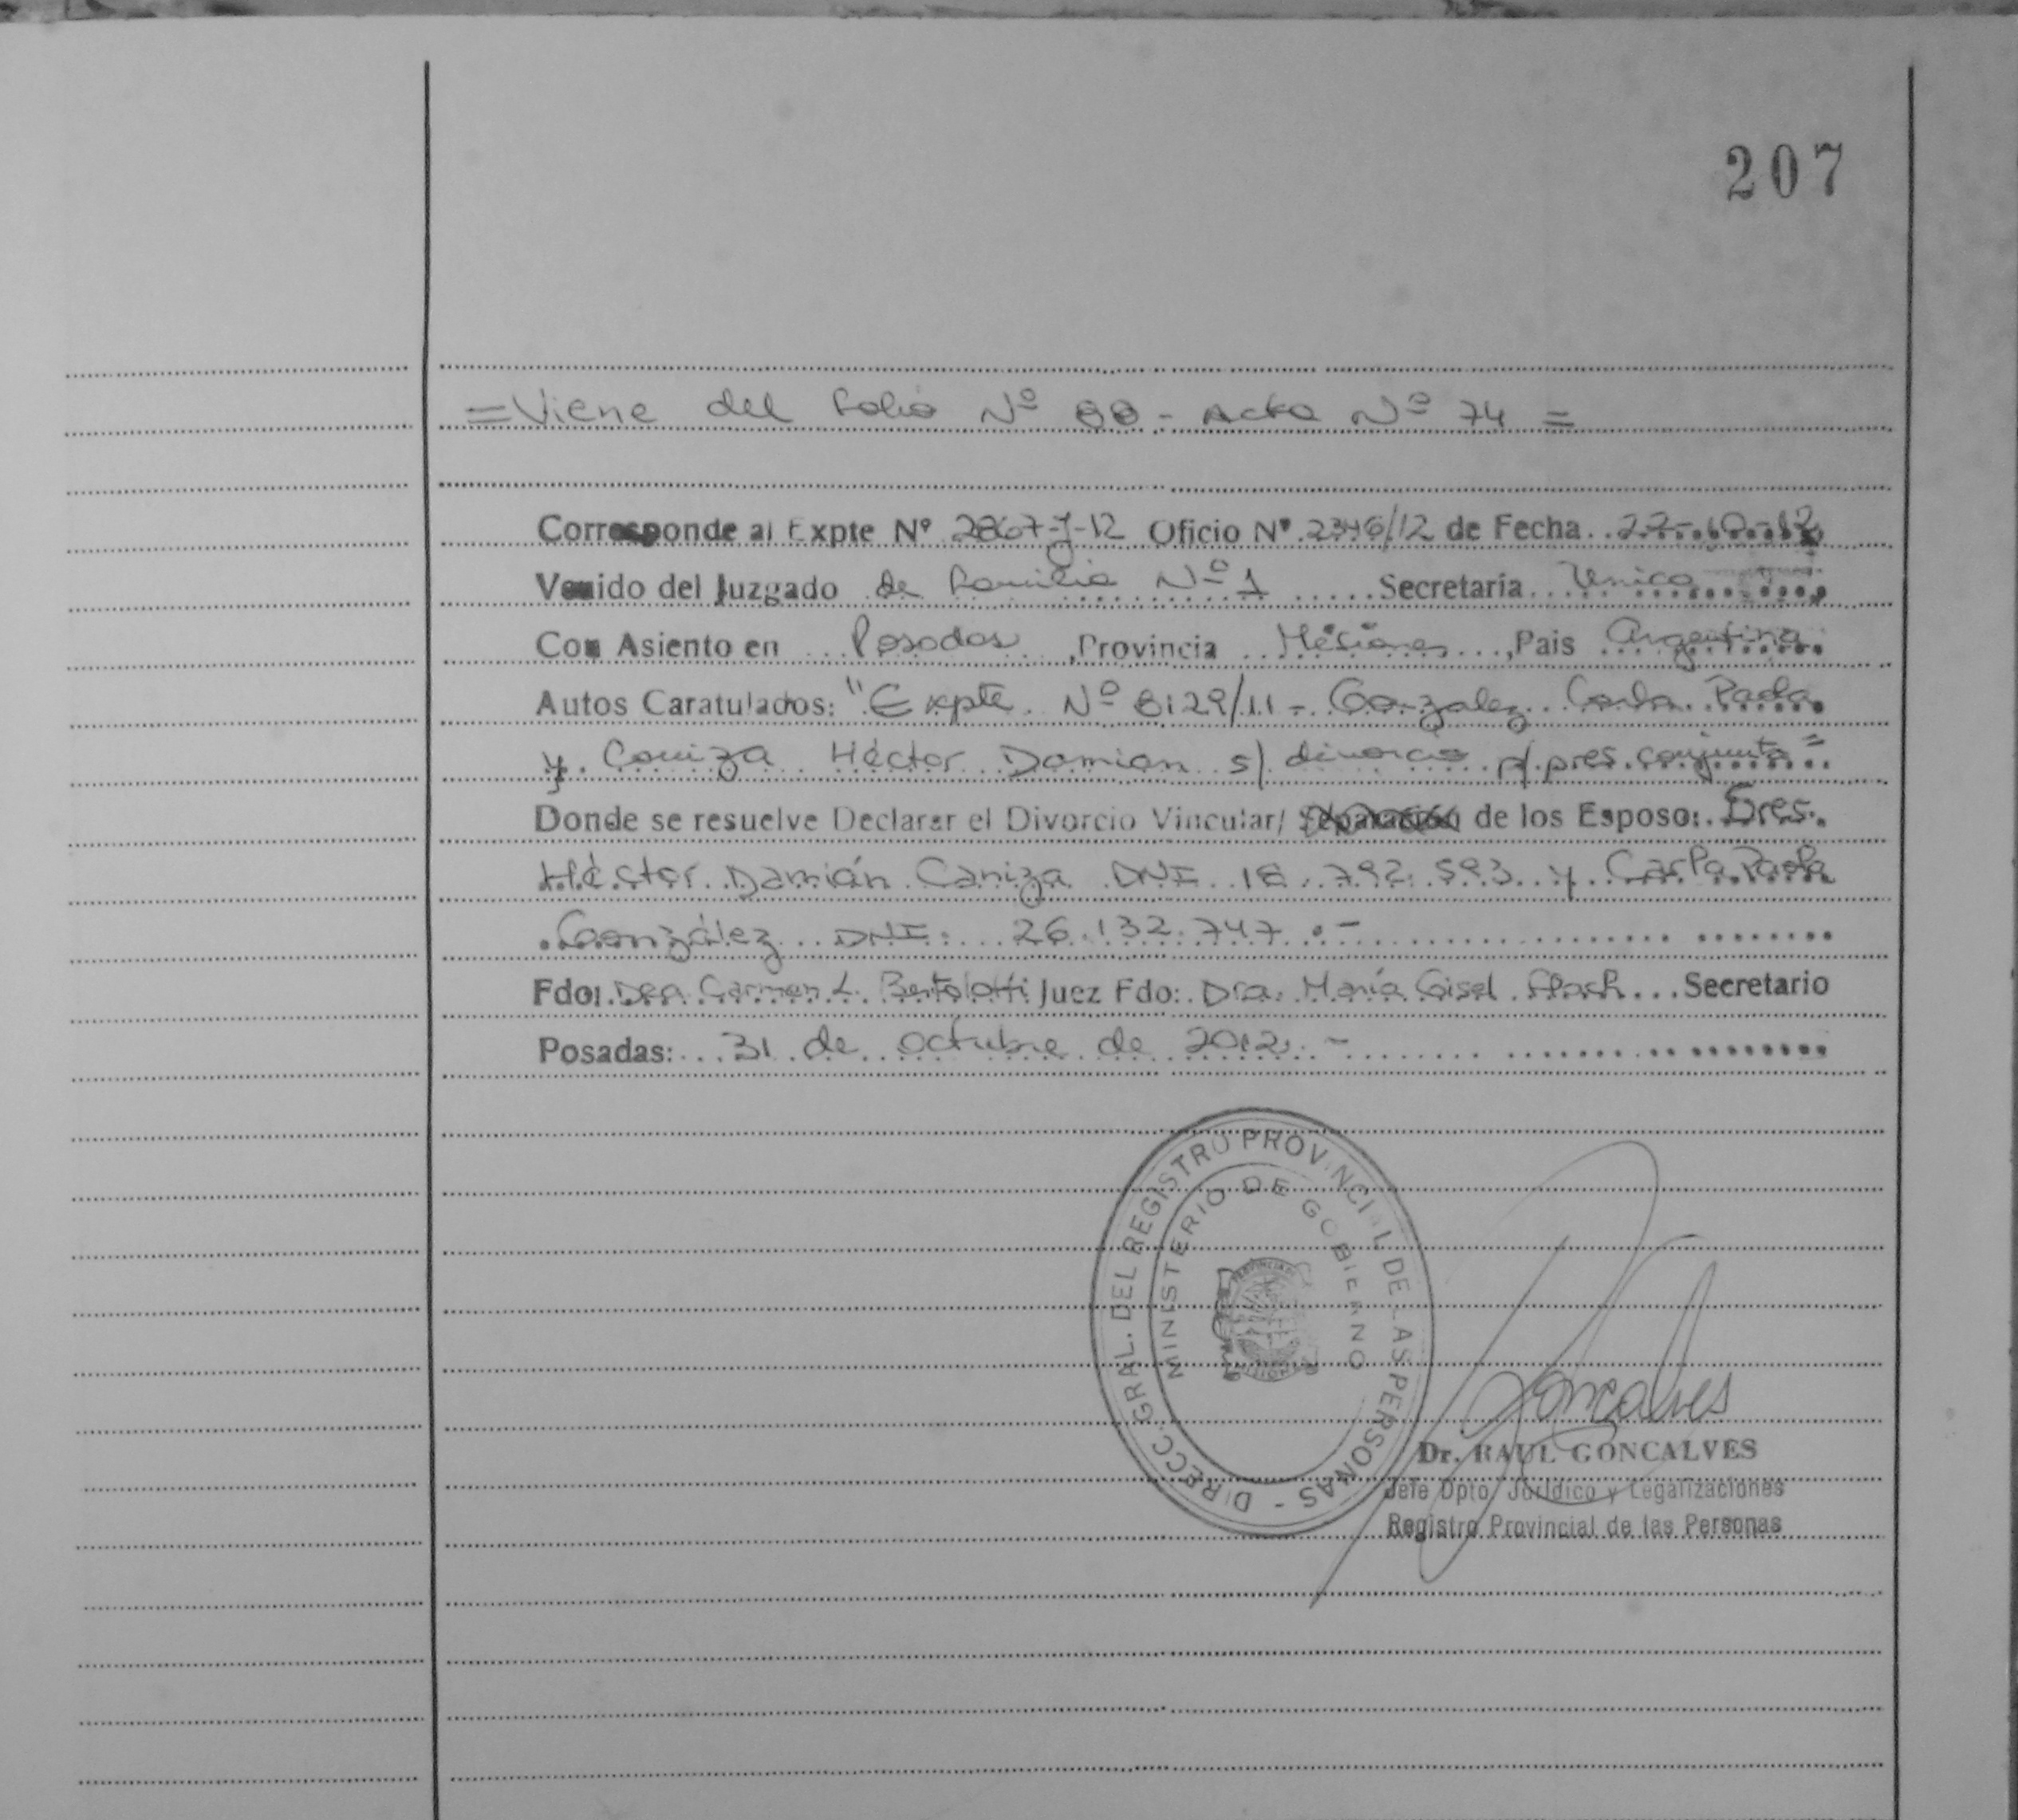 207
= Viene del folio Nº 88 - Acta Nº 74 =
Corresponde al Expte Nº 2867-J-12 Oficio Nº 2346/12 de Fecha 22-10-12
Venido del Juzgado de Familia Nº 1 Secretaría Unica
Con Asiento en Posadas, Provincia Misiones, Pais Argentina
Autos Caratulados: "Expte Nº 8129/11 - Gonzalez Carla Paola
y Caniza Héctor Damian s/ divorcio p/ pres. conjunta"
Donde se resuelve Declarar el Divorcio Vincular/ Separación de los Esposo: Sres.
Héctor Damián Caniza DNI 18.792.593 y Carla Paola
González DNI: 26.132.747.-
Fdo: Dra. Carmen L. Bertolotti Juez Fdo: Dra. María Gisel Secretario
Posadas: 31 de octubre de 2012.-
DIRECC. GRAL. DEL REGISTRO PROVINCIAL DE LAS PERSONAS -
MINISTERIO DE GOBIERNO
Goncalves
Dr. RAUL GONCALVES
Jefe Dpto. Jurídico y Legalizaciones
Registro Provincial de las Personas